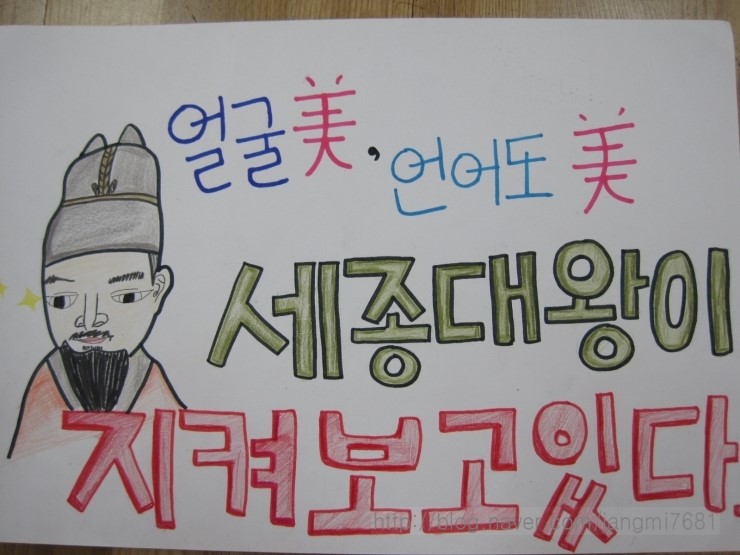 얼굴美, 언어도 美
세종대왕이
지켜보고있다.
http://blog.naver.com/jangmi7681